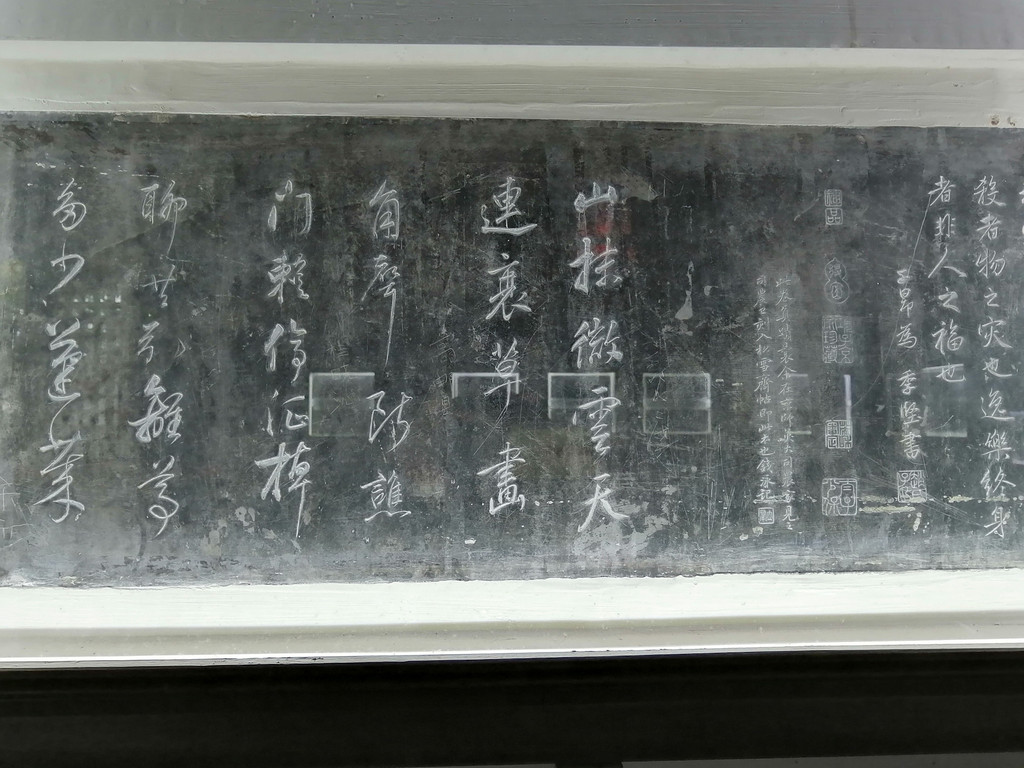 殺者物之灾也逸樂終身
者非人之福也
子昂為 季堅書
山抹微雲天
連衰草畫
角聲断譙
門暫停征棹
聊共引離尊
多少蓬萊